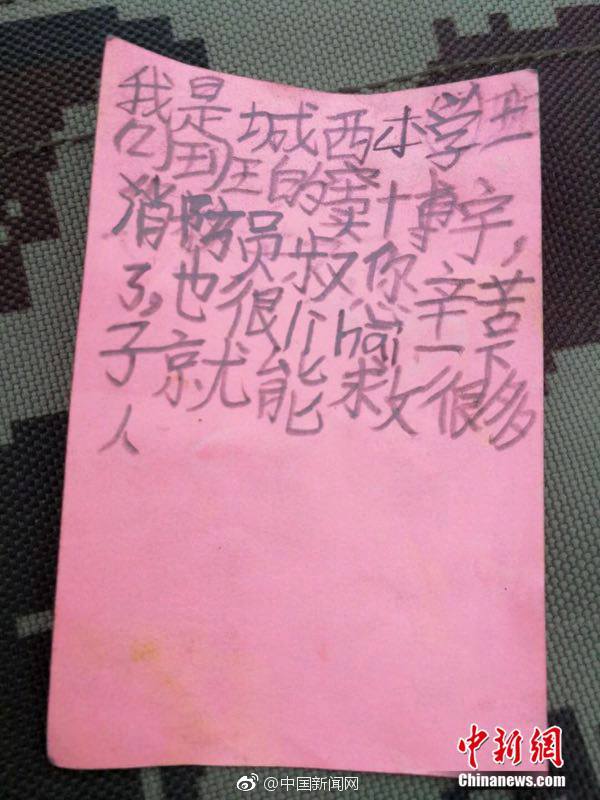 我是城西小学二
(4)班的窦博宇,
消防员叔你辛苦
了,也很 hai 一下
子就能救很多
人
@中国新闻网
中新网
Chinanews.com